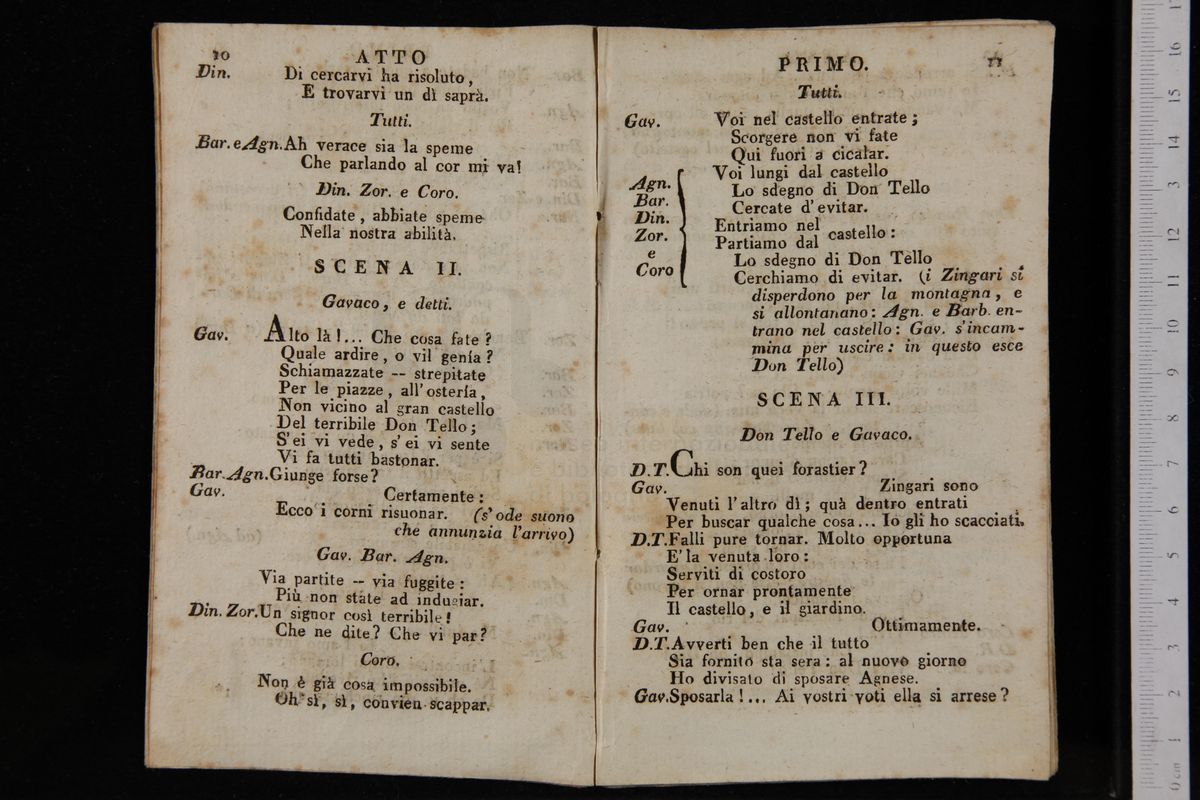 10 ATTO
Din. Di cercarvi ha risoluto,
E trovarvi un dì saprà.
Tutti.
Bar. e Agn. Ah verace sia la speme
Che parlando al cor mi va!
Din. Zor. e Coro.
Confidate, abbiate speme
Nella nostra abilità.
SCENA II.
Gavaco, e detti.
Gav. Alto là!... Che cosa fate?
Quale ardire, o vil genía?
Schiamazzate -- strepitate
Per le piazze, all'ostería,
Non vicino al gran castello
Del terribile Don Tello;
S'ei vi vede, s'ei vi sente
Vi fa tutti bastonar.
Bar. Agn. Giunge forse?
Gav. Certamente:
Ecco i corni risuonar. (s'ode suono
che annunzia l'arrivo)
Gav. Bar. Agn.
Via partite -- via fuggite:
Più non state ad indugiar.
Din. Zor. Un signor così terribile!
Che ne dite? Che vi par?
Coro.
Non è già cosa impossibile.
Oh sì, sì, convien scappar.
PRIMO. 11
Tutti.
Gav. Voi nel castello entrate;
Scorgere non vi fate
Qui fuori a cicalar.
Voi lungi dal castello
Agn. Lo sdegno di Don Tello
Bar. Cercate d'evitar.
Din. Entriamo nel
Zor. Partiamo dal castello:
e Lo sdegno di Don Tello
Coro Cerchiamo di evitar. (i Zingari si
disperdono per la montagna, e
si allontanano: Agn. e Barb. en-
trano nel castello: Gav. s'incam-
mina per uscire: in questo esce
Don Tello)
SCENA III.
Don Tello e Gavaco.
D.T. Chi son quei forastier?
Gav. Zingari sono
Venuti l'altro dì; quà dentro entrati
Per buscar qualche cosa... Io gli ho scacciati.
D.T. Falli pure tornar. Molto opportuna
E' la venuta loro:
Serviti di costoro
Per ornar prontamente
Il castello, e il giardino.
Gav. Ottimamente.
D.T. Avverti ben che il tutto
Sia fornito sta sera: al nuovo giorno
Ho divisato di sposare Agnese.
Gav. Sposarla!... Ai vostri voti ella si arrese?
17
16
15
14
13
12
11
10
9
8
7
6
5
4
3
2
1
0 cm